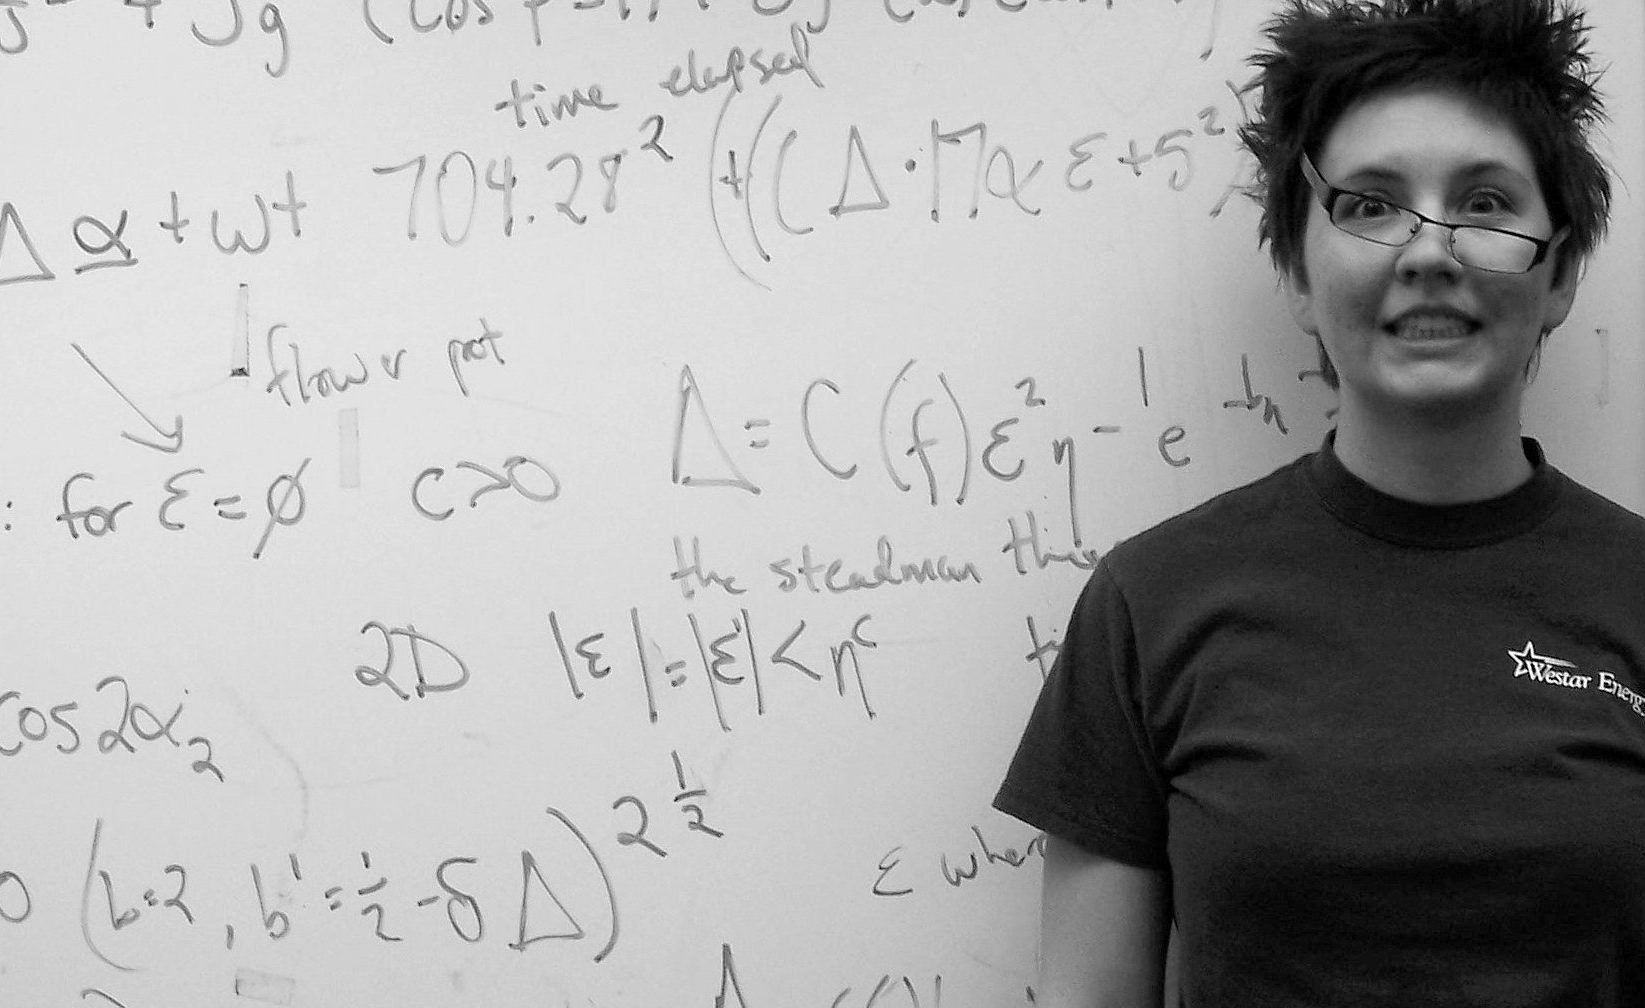 time elapsed
Δ α + wt 704.28² (+((Δ·Mαε+5²
flower pot
: for ε = ø c>0 Δ = C(f)ε²η - 1/e
the steadman
2D |ε| = |ε'| < η^c
cos2α₂
(b=2, b' = 1/2 - δΔ) 2^1/2
ε where
Δ
Westar Energy